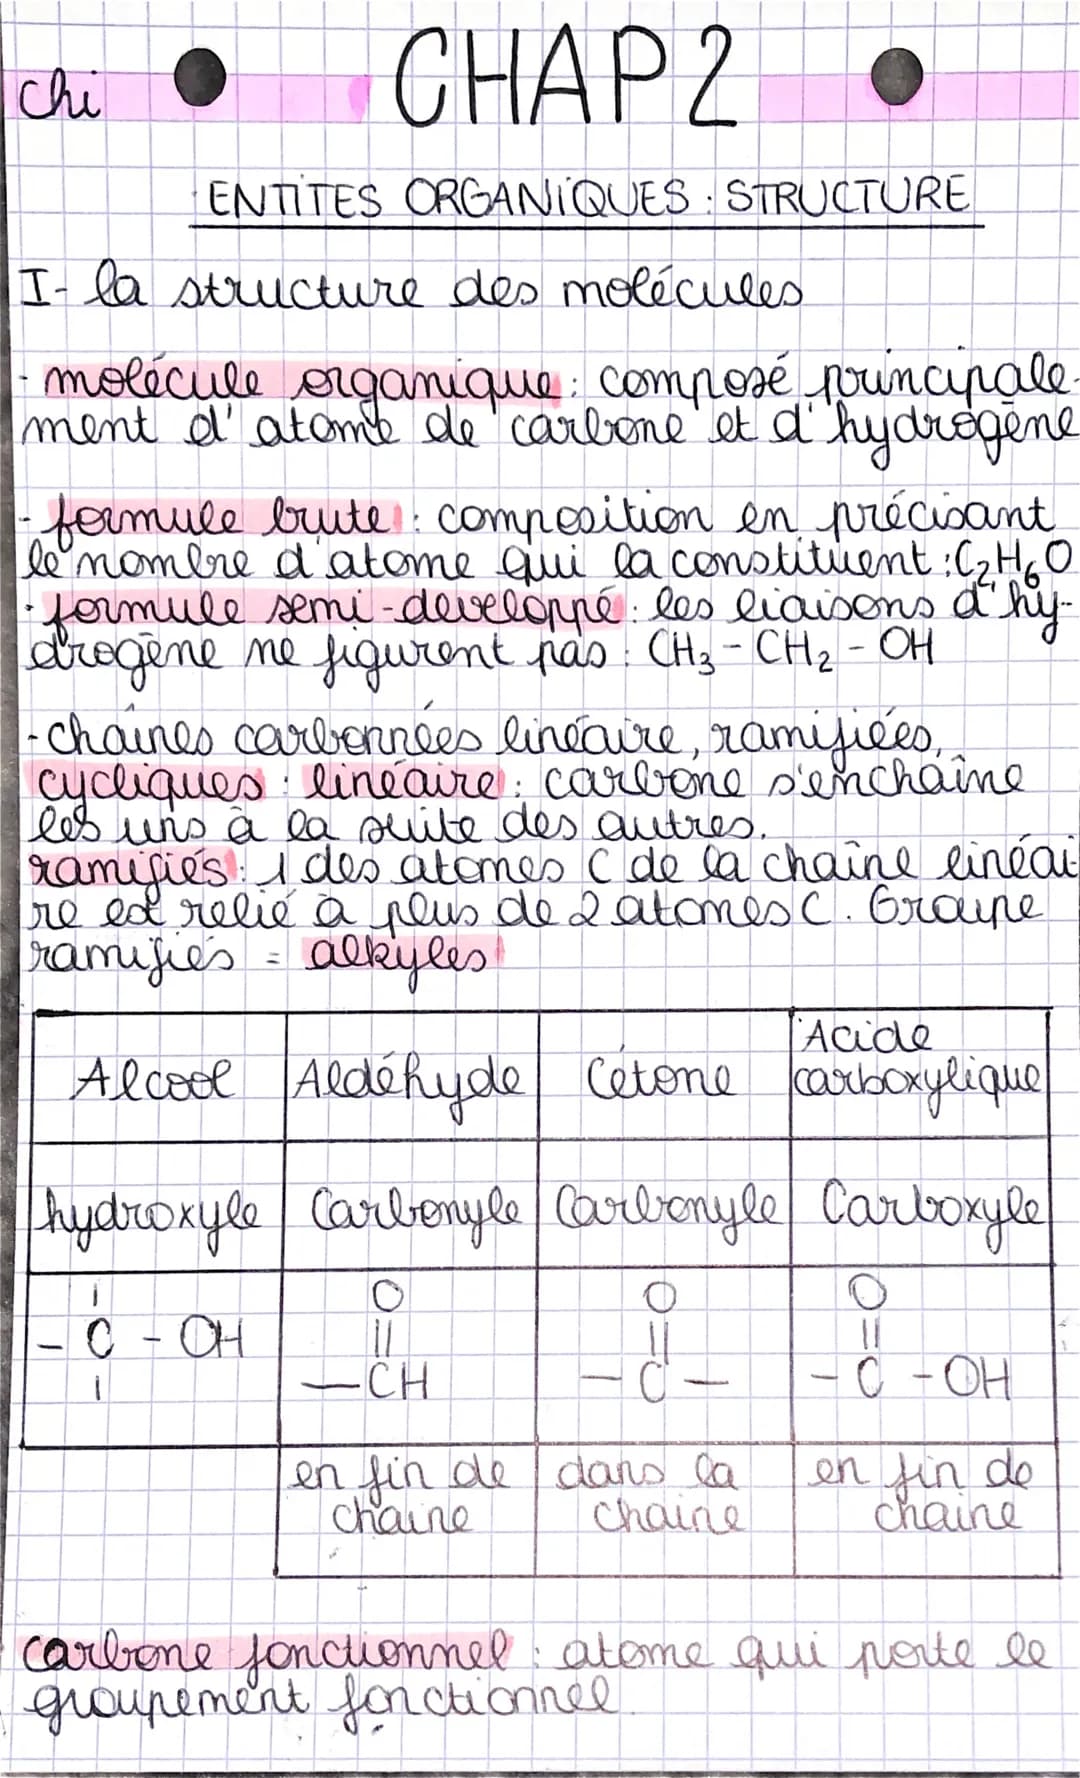 chi
CHAP 2
ENTITES ORGANIQUES : STRUCTURE
I- la structure des molécules
- molécule organique : composé principale-
ment d'atome de carbone et d'hydrogène
- formule brute : composition en précisant
le nombre d'atome qui la constituent : C₂H₆O
- formule semi-developpé : les liaisons d'hy-
drogène ne figurent pas : CH₃ - CH₂ - OH
- chaînes carbonnées linéaire, ramifiées,
cycliques : linéaire : carbone s'enchaîne
les uns à la suite des autres.
ramifiés : 1 des atomes C de la chaîne linéai
re est relié à plus de 2 atomes C. Groupe
ramifiés = alkyles
Alcool Aldéhyde Cétone Acide carboxylique
hydroxyle Carbonyle Carbonyle Carboxyle
O O O
- C - OH || || ||
— CH - C - - C - OH
en fin de dans la en fin de
chaine chaine chaine
carbone fonctionnel : atome qui porte le
groupement fonctionnel.